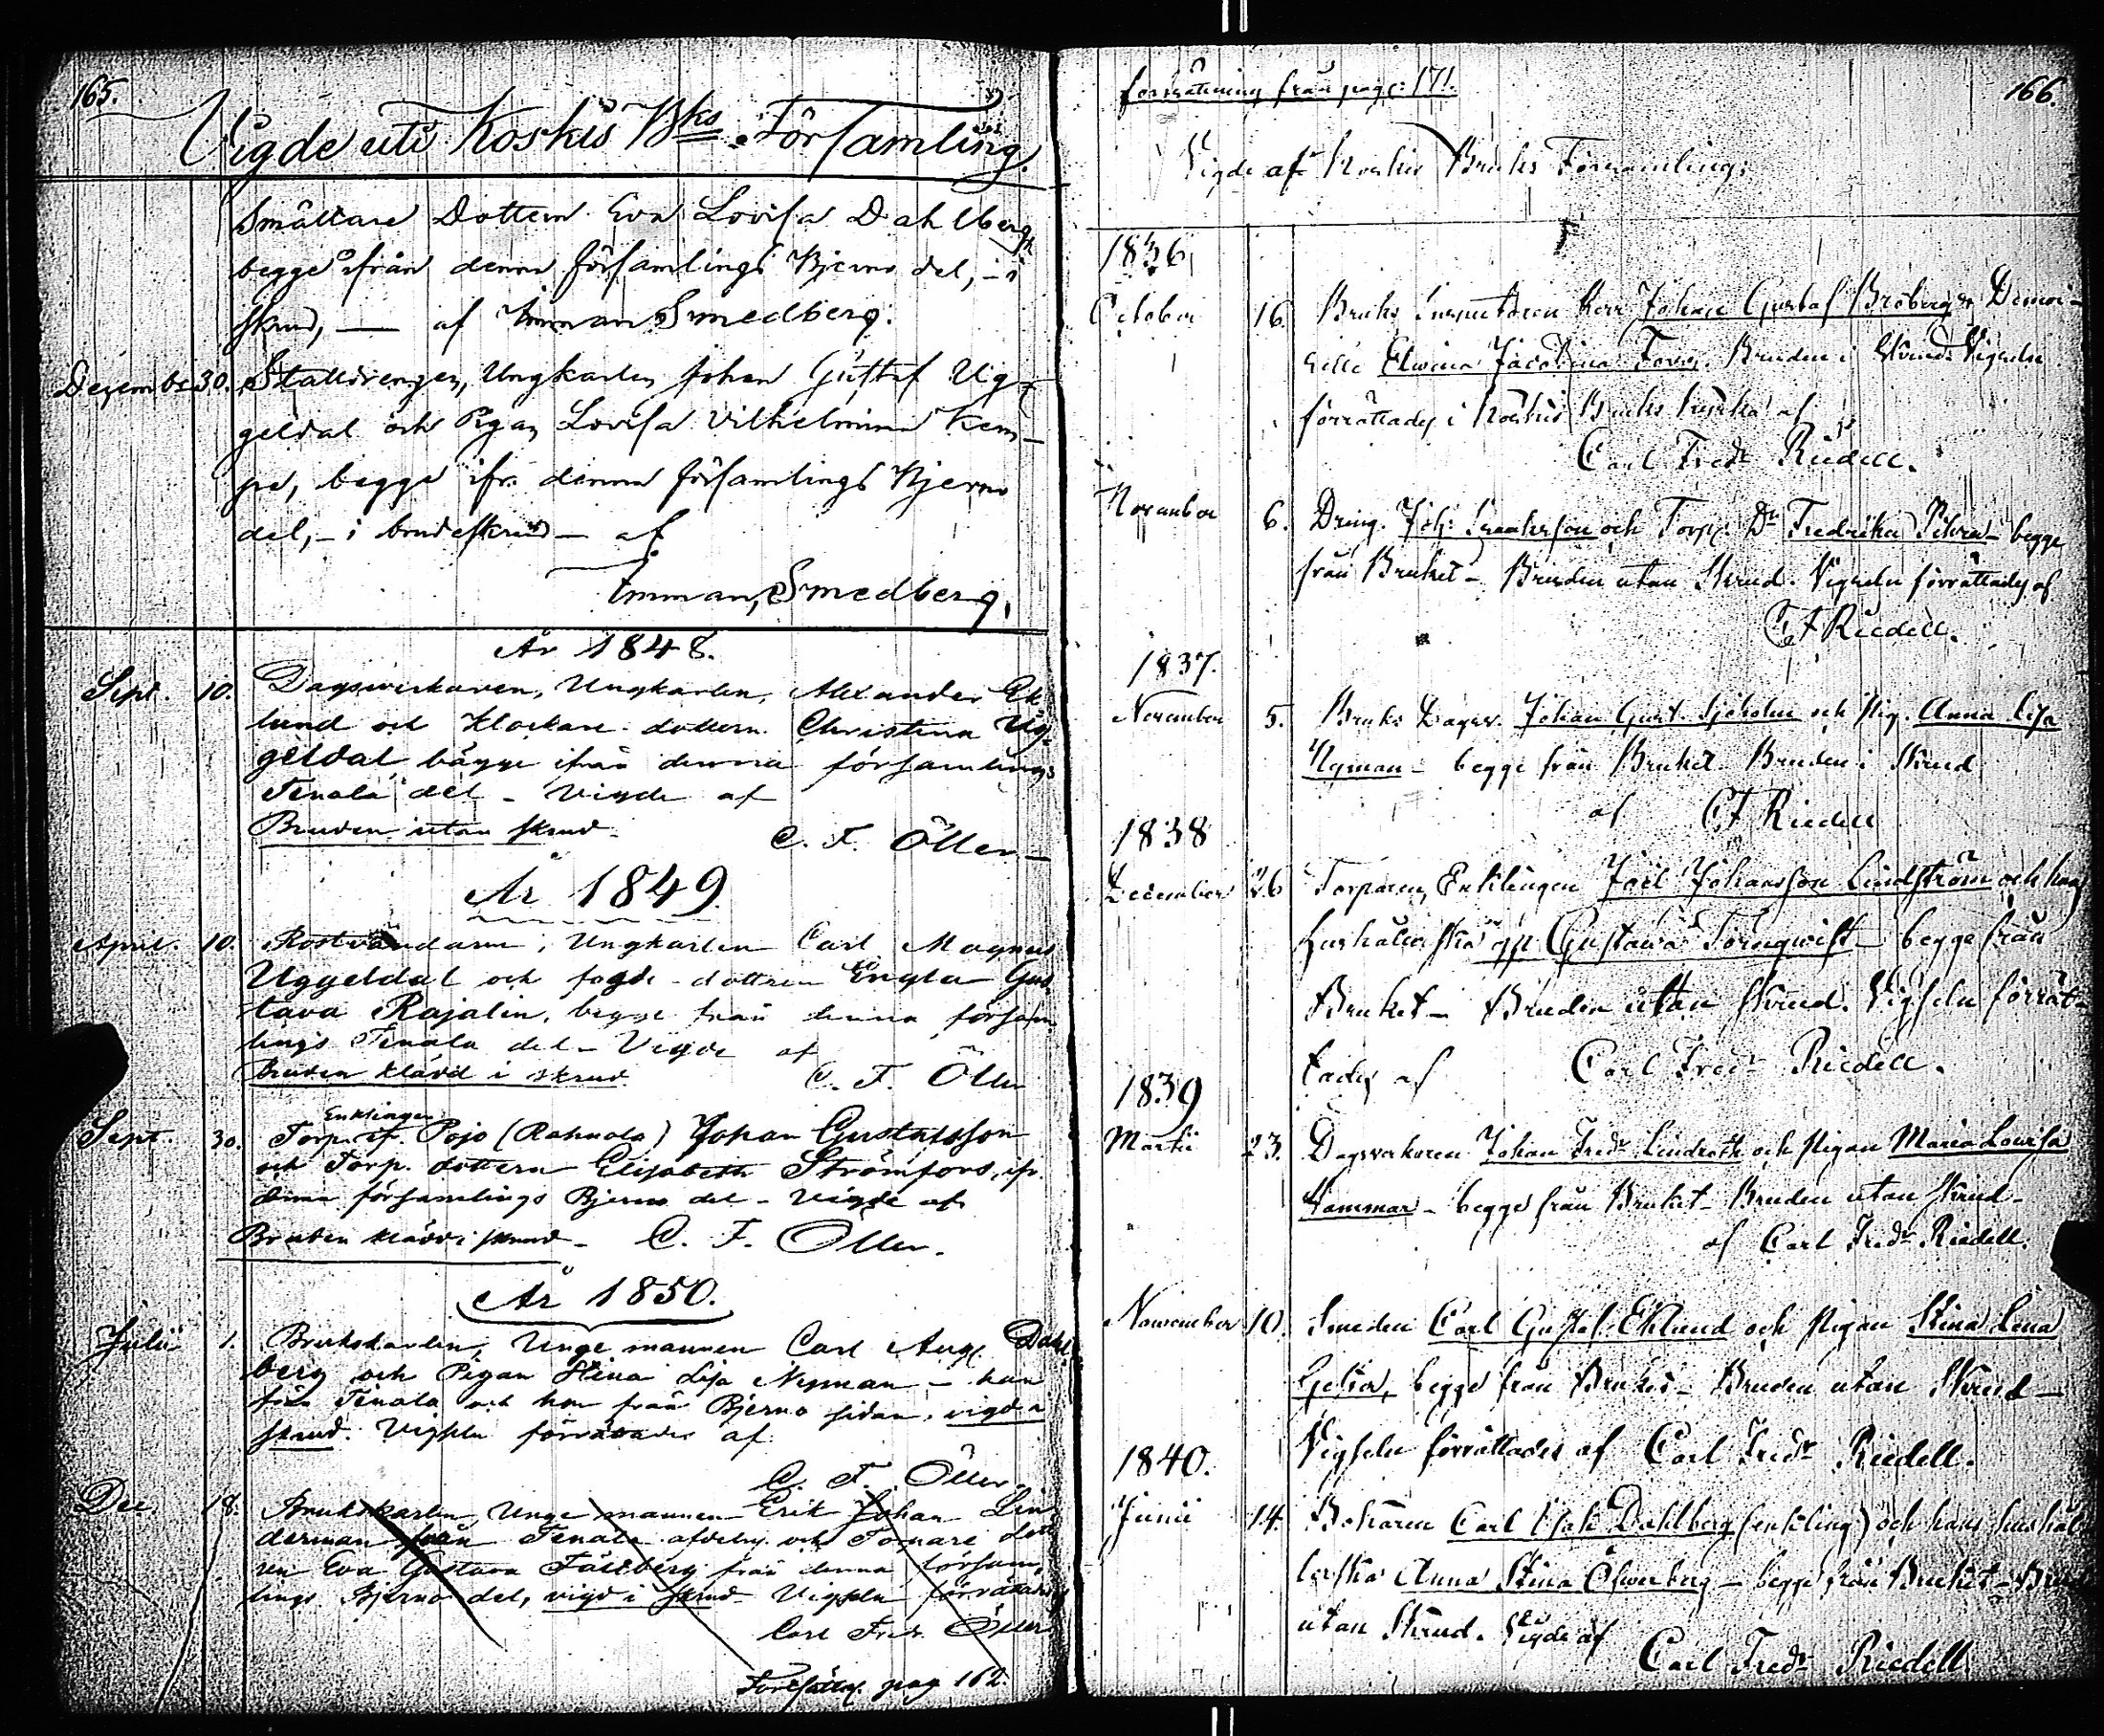 165.
Vigde uti Koskis Bks Församling.
Smältare Dottern Eva Lovisa Dahlberg
begge ifrån denna församlings Bjerno del, - i
skrud, — af Imman. Smedberg.
Dezemb. 30. Stalldrengen, Ungkarlen Johan Gustaf Ug-
geldal och Pigan Lovisa Vilhelmina Kem-
pe, begge ifr. denna församlings Bjerno
del, - i brudeskrud - af
Imman. Smedberg.
År 1848.
Sept. 10. Dagsverkaren, Ungkarlen, Alexander Ek
lund och Klockare dottern Christina Ug-
geldal bägge ifrån denna församlings
Tenala del - Vigde af
Bruden utan skrud - C. F. Öller —
År 1849.
April. 10. Rostvändaren, Ungkarlen Carl Magnus
Uggeldal och fogde-dottren Engla Gus
tava Rajalin, begge från denna försam
lings Tenala del - Vigde af
Bruden klädd i skrud C. F. Öller
Enklingen
Sept. 30. Torp. if. Pojo (Rahnola) Johan Gustafsson
och Torp. dottern Elisabeth Strömfors, ifr.
denna församlings Bjerno del - Vigde af
Bruden klädd i skrud - C. F. Öller.
År 1850.
Julii 1. Brukskarlen, Unge mannen Carl Aug. Dahl
berg och Pigan Stina Lisa Nyman - han
från Tenala och hon från Bjerno sidan, vigd i
skrud. Vigseln förrättades af
C. F. Öller
Dec. 18. Brukskarlen, Unge mannen Erik Johan Lin
derman från Tenala afdeln. och dott
ren Eva Gustava Fällberg från denna försam
lings Bjerno del, vigd i skrud Vigseln förrättades
Carl Fredr. Öller
pag 162.
från pag: 171.
166.
Vigde af Koskis Bruks Församling:
1836
October 16. Bruks Inspectoren Herr Johan Gustaf Broberg o. Demoi-
selle Elwina Jacobina Bruden i Skrud. Vigseln
förrättades i Koskis Bruks Kyrka af
Carl Fredr Riedell.
November 6. Dreng. Joh: Isaaksson och Torp. Dr Fredrika begge
från Bruket - Bruden utan Skrud. Vigseln förrättades af
CF Riedell.
1837.
November 5. Bruks Dagsv. Johan Gust. Sjöholm och Pig. Anna Lisa
Nyman - begge från Bruket - Bruden i Skrud
af CF Riedell
1838
December 26 Torparen, Enklingen Joël Johansson Lindström och hans
Hushållerska Gustawa Törnqwist - begge från
Bruket - Bruden utan Skrud. Vigseln förrät-
tades af Carl Fredr Riedell.
1839
Martii 23. Dagsverkaren Johan Fredr Lindroth och Pigan Maria Lovisa
Hammar - begge från Bruket - Bruden utan skrud -
af Carl Fredr Riedell.
November 10. Smeden Carl Gustaf Eklund och Pigan Stina Lena
begge från Bruket - Bruden utan Skrud -
Vigseln förrättades af Carl Fredr Riedell.
1840.
Junii 14. Bokaren Carl Isak Dahlberg (enkling) och hans hushål
lerska Anna Stina Öfwerberg - begge från Bruket - Bruden
utan Skrud. Vigde af
Carl Fredr Riedell